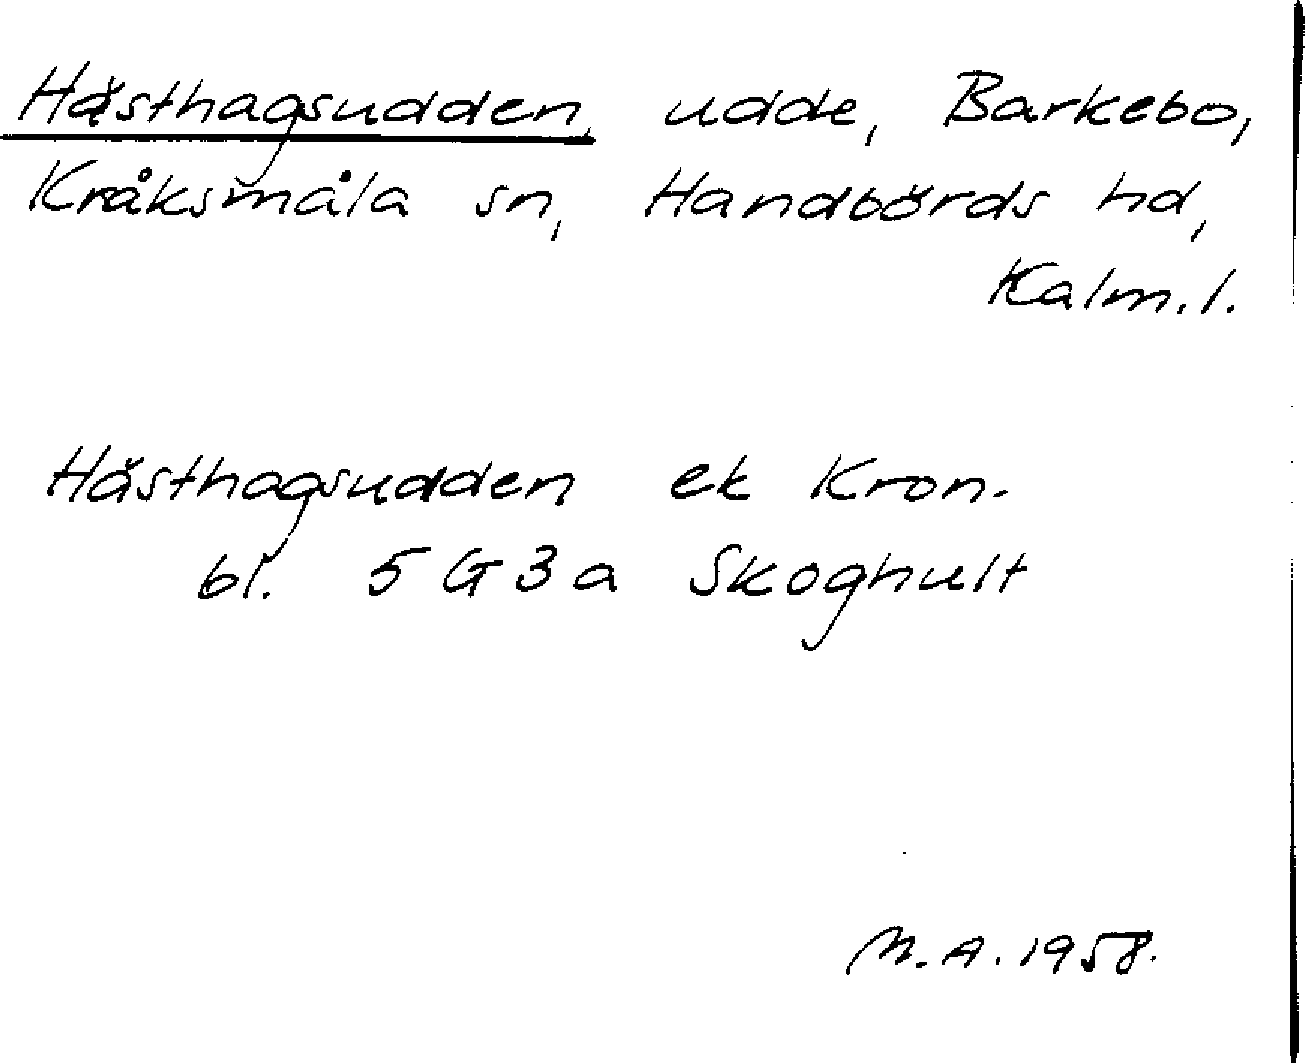 Hästhagsudden, udde, Barkebo,
Kråksmåla sn, Handbörds hd,
Kalm.l.
Hästhagsudden ek Kron.
bl. 5 G 3 a Skoghult
M.A. 1958.